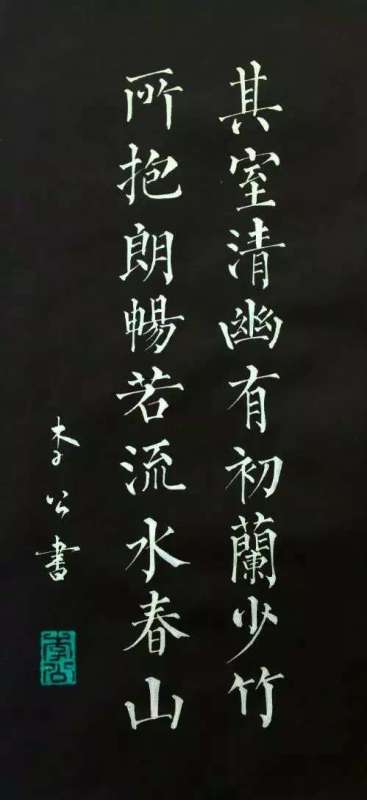 其室清幽有初蘭少竹
所抱朗暢若流水春山
李公書
李公